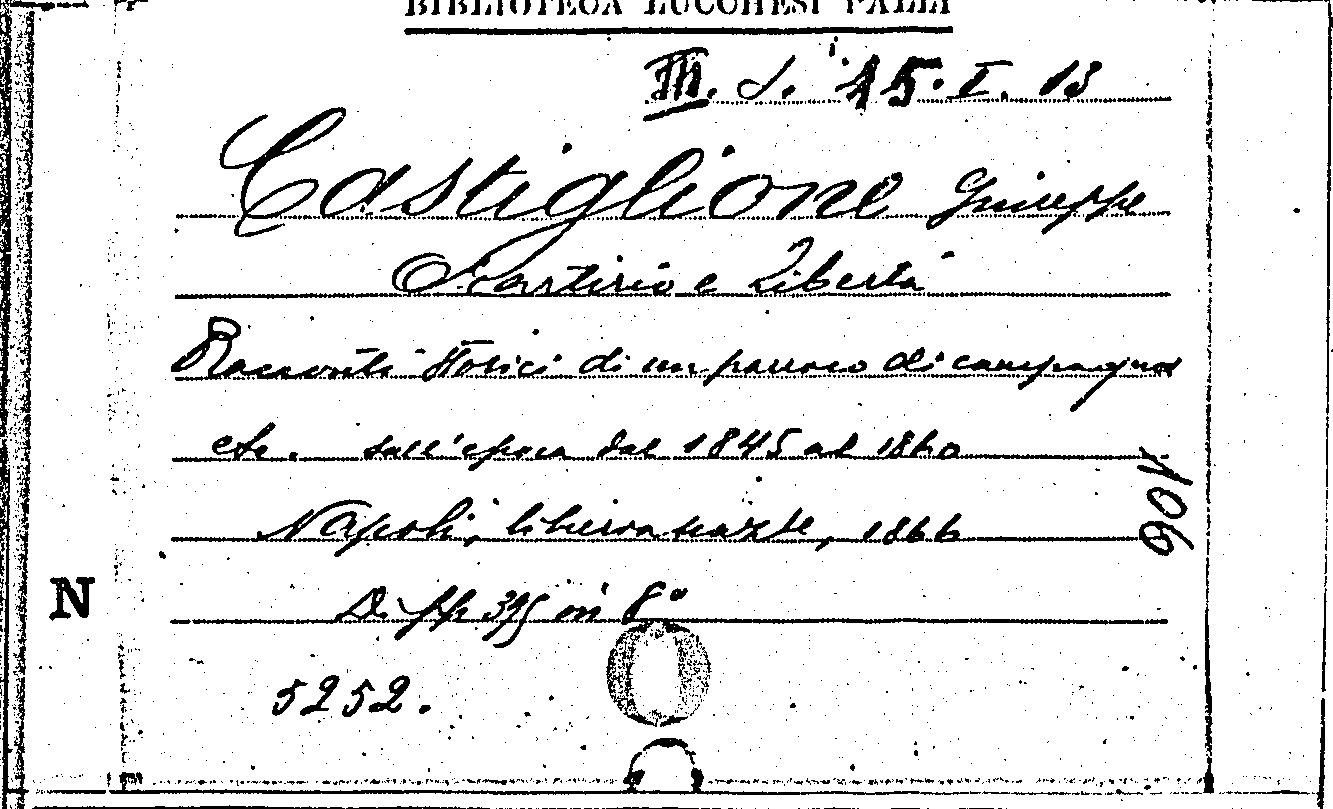 BIBLIOTECA LUCCHESI PALLI
III. S. 15. I. 13
Castiglione Giuseppe
Martirio e Libertà
Racconti storici di un parroco di campagna
etc. sull'epoca dal 1845 al 1860
Napoli, 1866
Di pp 395 in 8°
5252.
N
106